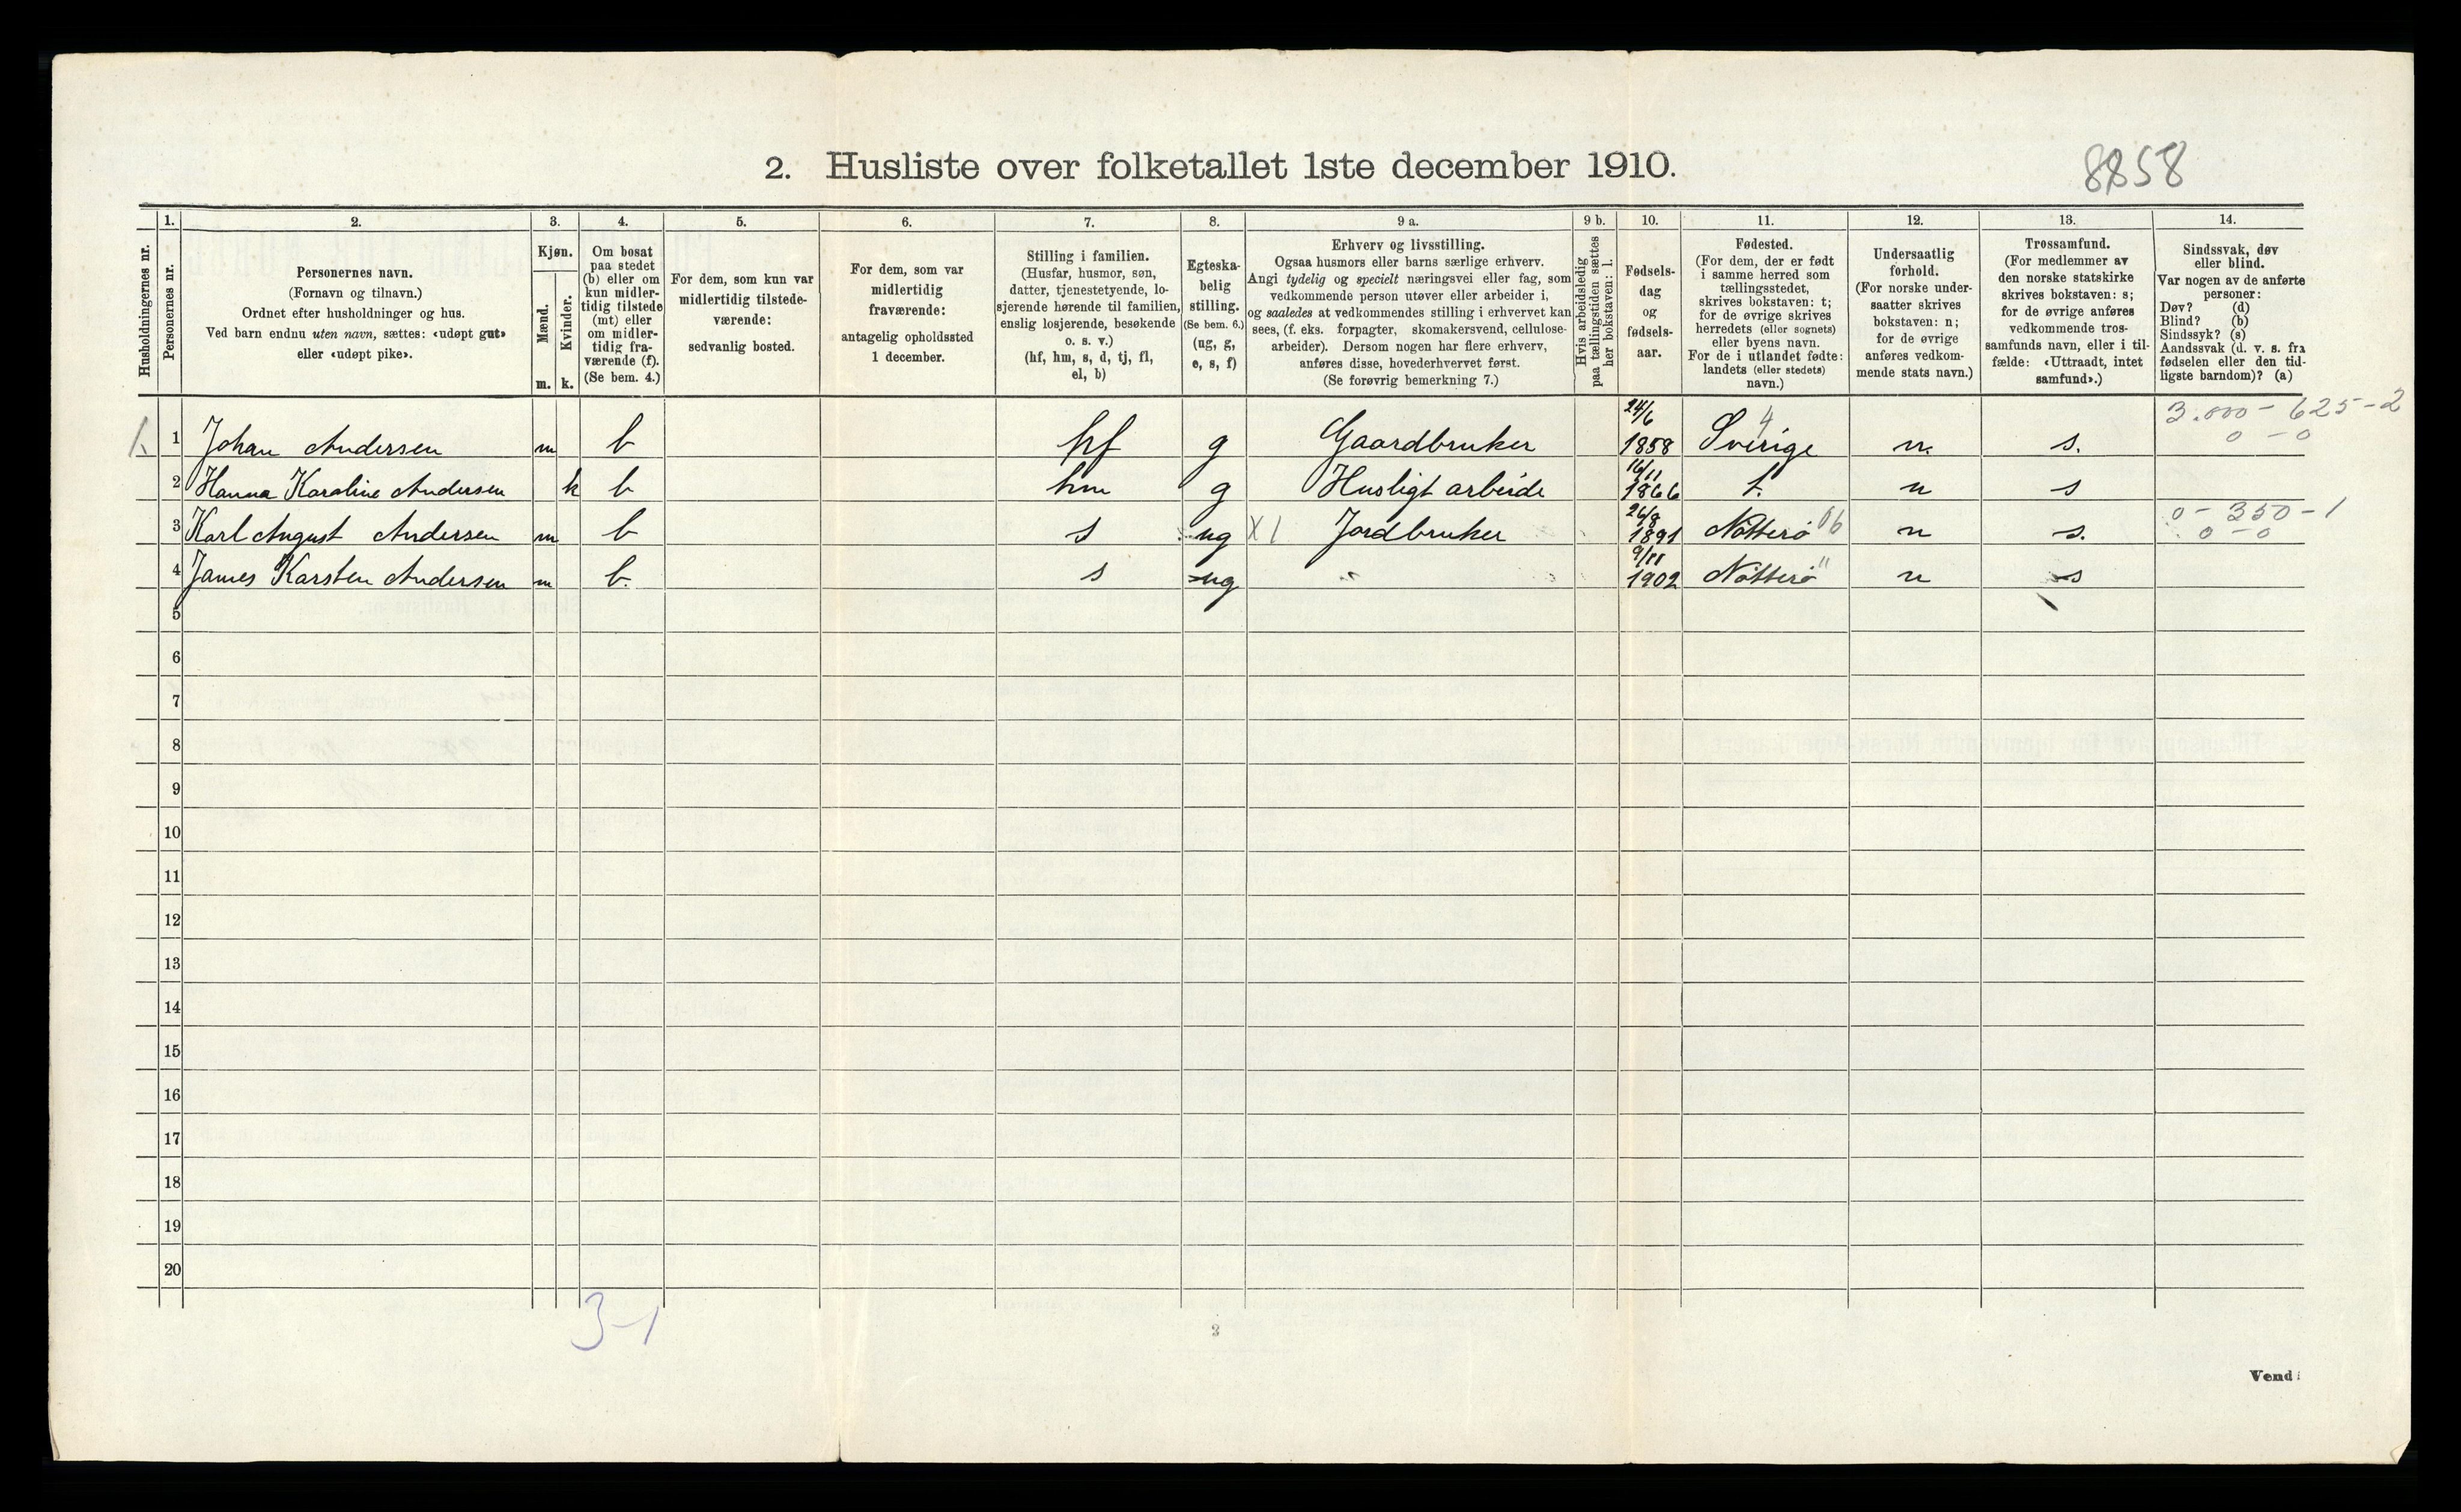 2. Husliste over folketallet 1ste december 1910.
8858
Husholdningernes nr.
1.
Personernes nr.
2.
Personernes navn.
(Fornavn og tilnavn.)
Ordnet efter husholdninger og hus.
Ved barn endnu uten navn, sættes: «udøpt gut»
eller «udøpt pike».
3.
Kjøn.
Mænd.
Kvinder.
m. k.
4.
Om bosat
paa stedet
(b) eller om
kun midler-
tidig tilstede
(mt) eller
om midler-
tidig fra-
værende (f).
(Se bem. 4.)
5.
For dem, som kun var
midlertidig tilstede-
værende:
sedvanlig bosted.
6.
For dem, som var
midlertidig
fraværende:
antagelig opholdssted
1 december.
7.
Stilling i familien.
(Husfar, husmor, søn,
datter, tjenestetyende, lo-
sjerende hørende til familien,
enslig losjerende, besøkende
o. s. v.)
(hf, hm, s, d, tj, fl,
el, b)
8.
Egteska-
belig
stilling.
(Se bem. 6.)
(ug, g,
e, s, f)
9 a.
Erhverv og livsstilling.
Ogsaa husmors eller barns særlige erhverv.
Angi tydelig og specielt næringsvei eller fag, som
vedkommende person utøver eller arbeider i,
og saaledes at vedkommendes stilling i erhvervet kan
sees, (f. eks. forpagter, skomakersvend, cellulose-
arbeider). Dersom nogen har flere erhverv,
anføres disse, hovederhvervet først.
(Se forøvrig bemerkning 7.)
9 b.
Hvis arbeidsledig
paa tællingstiden sættes
her bokstaven: l.
10.
Fødsels-
dag
og
fødsels-
aar.
11.
Fødested.
(For dem, der er født
i samme herred som
tællingsstedet,
skrives bokstaven: t;
for de øvrige skrives
herredets (eller sognets)
eller byens navn.
For de i utlandet fødte:
landets (eller stedets)
navn.)
12.
Undersaatlig
forhold.
(For norske under-
saatter skrives
bokstaven: n;
for de øvrige
anføres vedkom-
mende stats navn.)
13.
Trossamfund.
(For medlemmer av
den norske statskirke
skrives bokstaven: s;
for de øvrige anføres
vedkommende tros-
samfunds navn, eller i til-
fælde: «Uttraadt, intet
samfund».)
14.
Sindssvak, døv
eller blind.
Var nogen av de anførte
personer:
Døv? (d)
Blind? (b)
Sindssyk? (s)
Aandssvak (d. v. s. fra
fødselen eller den tid-
ligste barndom)? (a)
3.000 - 625 - 2
0 - 0
1. 1 Johan Andersen m b hf g Gaardbruker 24/6 1858 Sverige 4 n. s.
2 Hanna Karoline Andersen k b hm g Husligt arbeide 16/11 1866 t. n s
0 - 350 - 1
0 - 0
3 Karl August Andersen m b s ug X 1 Jordbruker 26/8 1891 Nötterö n s.
4 James Karsten Andersen m b. s ug " 9/11 1902 Nötterö " n s
5
6
7
8
9
10
11
12
13
14
15
16
17
18
19
20
3-1
3
Vend!